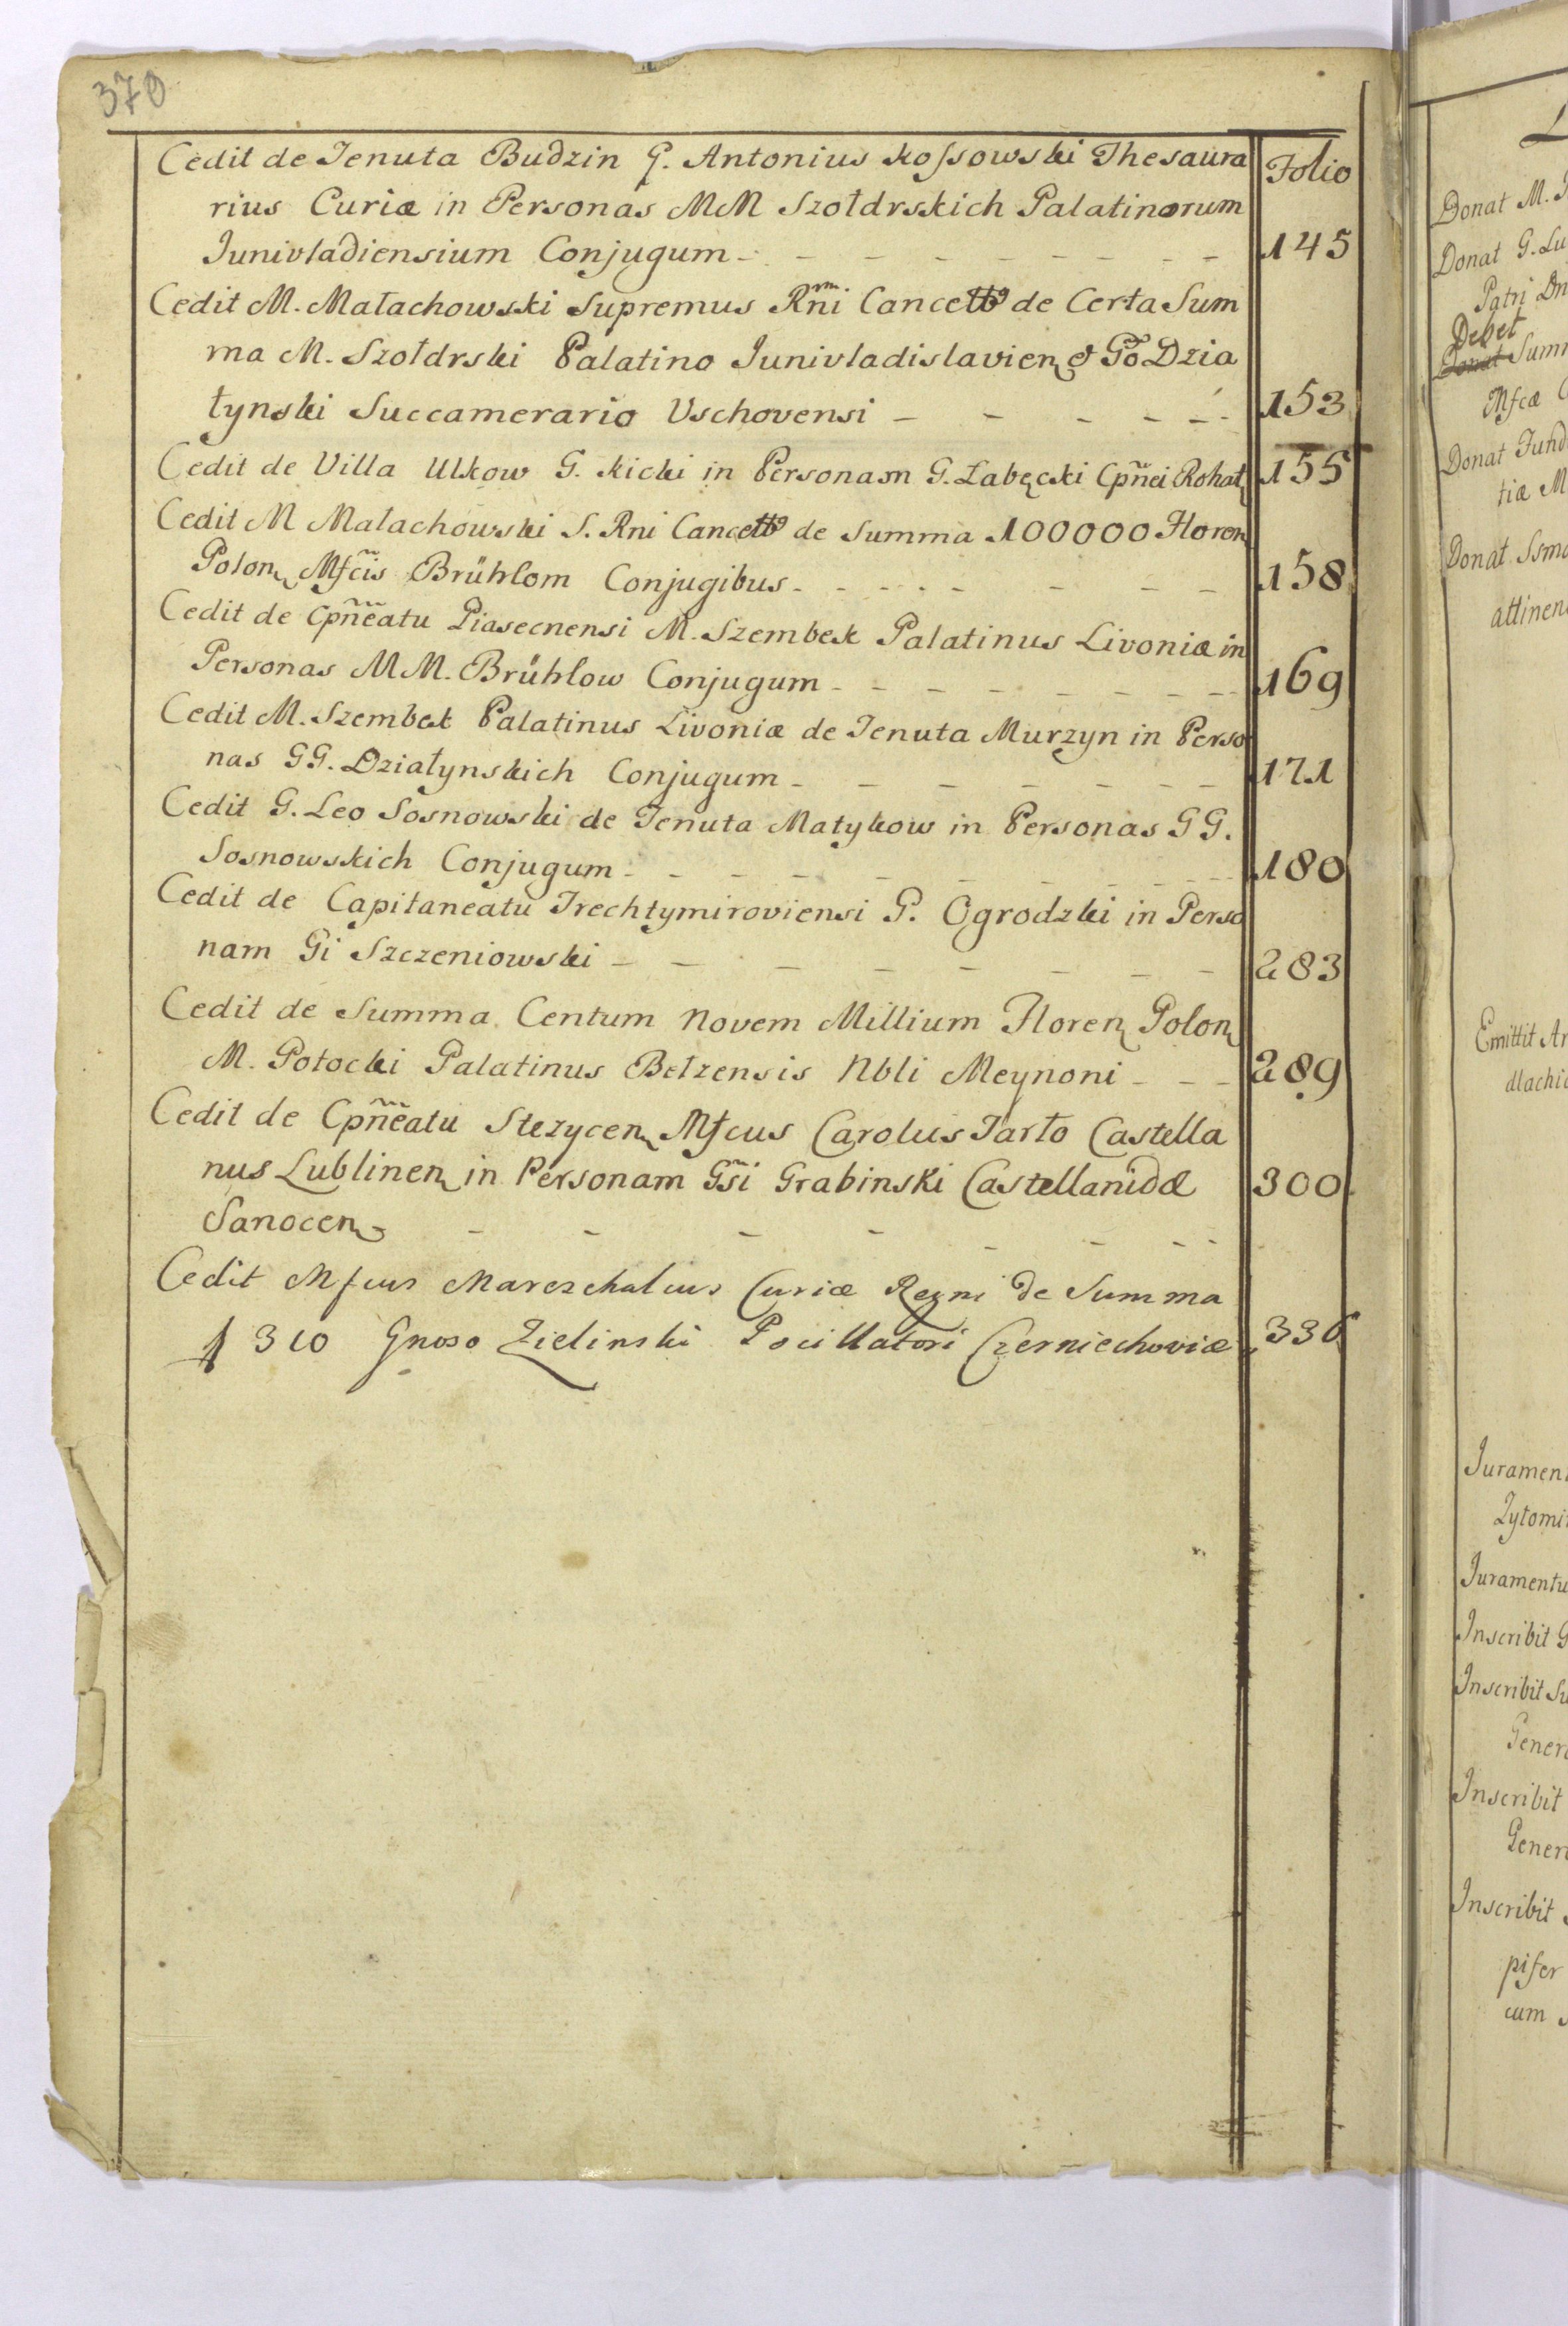 370
Folio
Cedit de Tenuta Budzin G. Antonius Kossowski Thesaura
rius Curiæ in Personas MM Szołdrskich Palatinorum
Junivladiensium Conjugum - - - - - - - - - 145
Cedit M. Małachowski Supremus Rm̃i Cancell9 de Certa Sum
ma M. Szołdrski Palatino Junivladislavien & Go Dzia
łynski Succamerario Vschovensi - - - - - - 153
Cedit de Villa Ulkow G. Kicki in Personam G. Łabęcki Cpñei Rohat 155
Cedit M Małachowski S. Rni Cancell9 de Summa 100000 Floren
Polon Mfcis Brühlom Conjugibus - - - - - - - - 158
Cedit de Cpñeatu Piasecnensi M. Szembek Palatinus Livoniæ in
Personas MM. Brühlow Conjugum - - - - - - - - 169
Cedit M. Szembek Palatinus Livoniæ de Tenuta Murzyn in Perso
nas GG. Działynskich Conjugum - - - - - - - 171
Cedit G. Leo Sosnowski de Tenuta Matykow in Personas GG.
Sosnowskich Conjugum - - - - - - - - - - 180
Cedit de Capitaneatu Trechtymiroviensi G. Ogrodzki in Perso
nam Gi Szczeniowski - - - - - - - - 283
Cedit de Summa Centum Novem Millium Floren Polon
M. Potocki Palatinus Bełzensis Nbli Meynoni - - - 289
Cedit de Cpñeatu Stezycen Mfcus Carolus Tarło Castella
nus Lublinen in Personam Gsi Grabinski Castellanidæ 300
Sanocen - - - - - - - -
Cedit Mfcus Mareschalcus Curiæ Regni de Summa
310 Gnoso Zielinski Pocillatori Czerniechoviæ 336
Donat M.
Donat G. Lu
Patri Dn
Debet
Donat Summ
Mfcæ
Donat Fund
tiæ M
Donat Ssmo
attinen
Emittit Ar
dlachi
Jurament
Zytomi
Juramentu
Inscribit G
Inscribit Su
Gener
Inscribit
Gener
Inscribit
pifer
cum